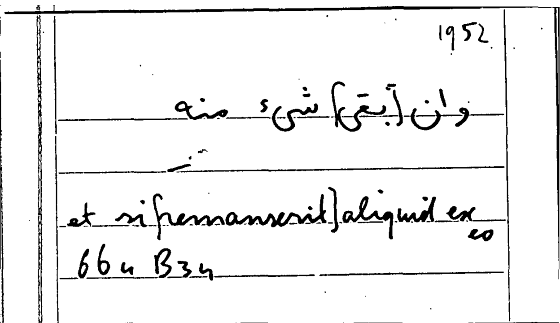 1952
وان [بقى] شىء منه
et si [remanserit] aliquid ex
eo
66u B34